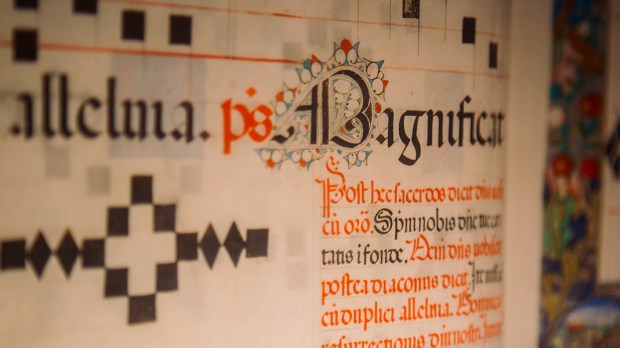 alleluia. ps Magnificat
Post hec sacerdos dicit
cū orō. Spm nobis dne tue cari
tatis ifonde. Dein dns vobiscu
postea diaconus dicit. Ite missa
cū duplici alleluia. Dominica
resurrectionis dni nostri.